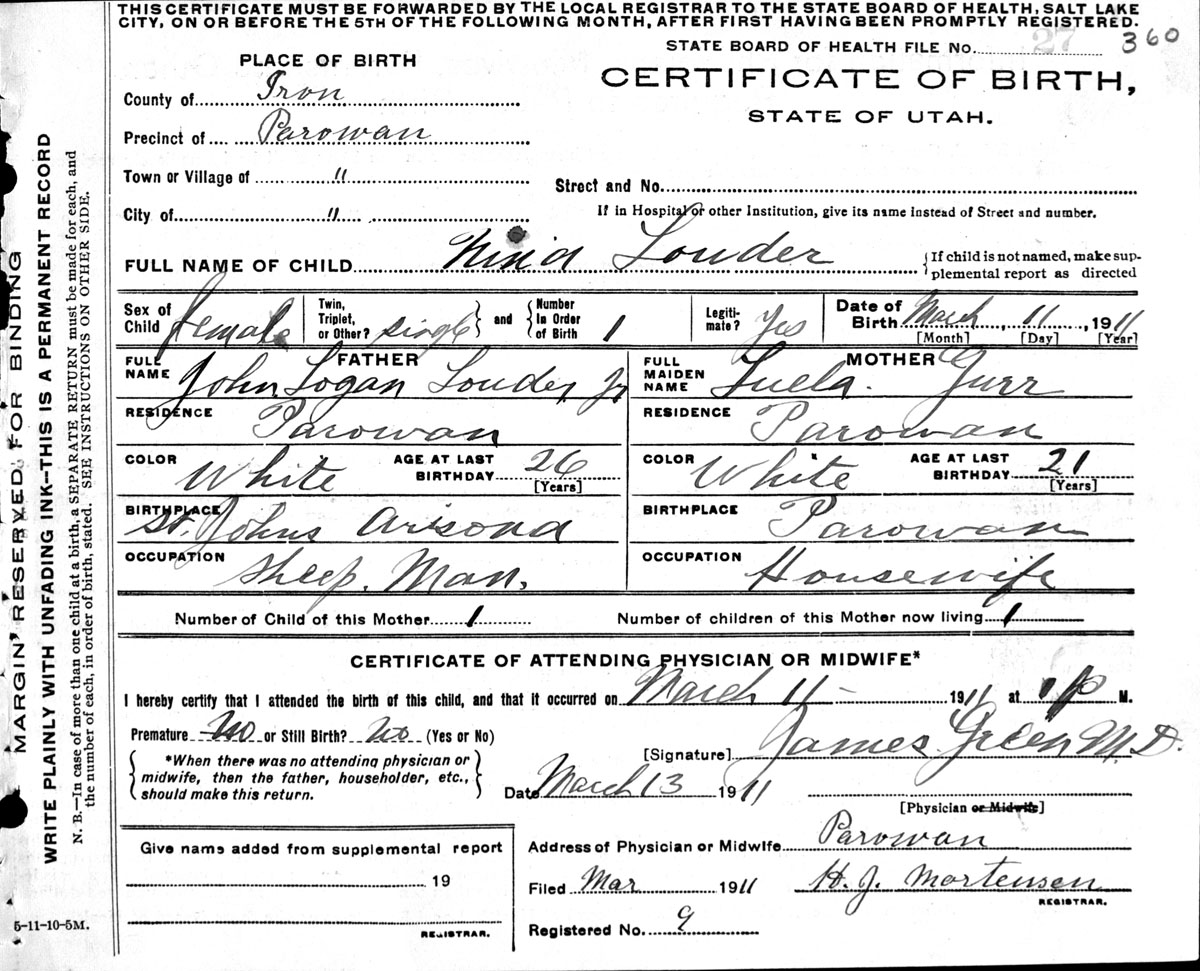 THIS CERTIFICATE MUST BE FORWARDED BY THE LOCAL REGISTRAR TO THE STATE BOARD OF HEALTH, SALT LAKE
CITY, ON OR BEFORE THE 5TH OF THE FOLLOWING MONTH, AFTER FIRST HAVING BEEN PROMPTLY REGISTERED.
STATE BOARD OF HEALTH FILE No. 27 360
PLACE OF BIRTH
CERTIFICATE OF BIRTH,
STATE OF UTAH.
County of Iron
Precinct of Parowan
Town or Village of "
Street and No.
City of "
If in Hospital or other Institution, give its name instead of Street and number.
FULL NAME OF CHILD Louder
{If child is not named, make sup-
plemental report as directed
Sex of Child Female
Twin, Triplet, or Other? single
and
Number In Order of Birth 1
Legiti-mate? Yes
Date of Birth March, 11, 1911
[Month] [Day] [Year]
FATHER
FULL NAME John Logan Louder Jr
MOTHER
FULL MAIDEN NAME Luela Gurr
RESIDENCE Parowan
RESIDENCE Parowan
COLOR White AGE AT LAST BIRTHDAY 26 [Years]
COLOR White AGE AT LAST BIRTHDAY 21 [Years]
BIRTHPLACE St. Johns Arisona
BIRTHPLACE Parowan
OCCUPATION Sheep. Man.
OCCUPATION Housewife
Number of Child of this Mother 1
Number of children of this Mother now living 1
CERTIFICATE OF ATTENDING PHYSICIAN OR MIDWIFE*
I hereby certify that I attended the birth of this child, and that it occurred on March 11 1911 at 1 P M.
Premature No or Still Birth? No (Yes or No)
[Signature] James Green M.D.
{*When there was no attending physician or
midwife, then the father, householder, etc.,
should make this return.}
Date March 13 1911
[Physician or Midwife]
Give name added from supplemental report
19
REGISTRAR.
Address of Physician or Midwife Parowan
Filed Mar 1911 H. J. Mortensen
REGISTRAR.
Registered No. 9
MARGIN RESERVED FOR BINDING
WRITE PLAINLY WITH UNFADING INK—THIS IS A PERMANENT RECORD
N. B.—In case of more than one child at a birth, a SEPARATE RETURN must be made for each, and
the number of each, in order of birth, stated. SEE INSTRUCTIONS ON OTHER SIDE.
5-11-10-5M.